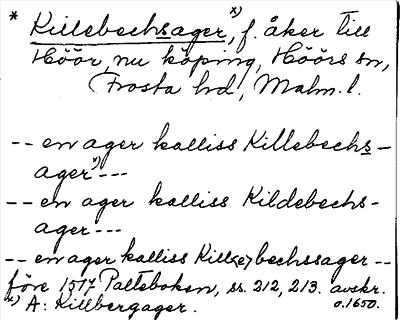 * Killebechsager,*) f. åker till
Höör, nu köping, Höörs sn,
Frosta hd, Malm. l.
-- en ager kalliss Killebechs-
ager*)---
-- en ager kalliss Kildebechs-
ager---
-- en ager kalliss Kill(e)bechssager --
före 1517 Palteboken, ss. 212, 213. avskr.
o. 1650.
*) A: Killbergager.